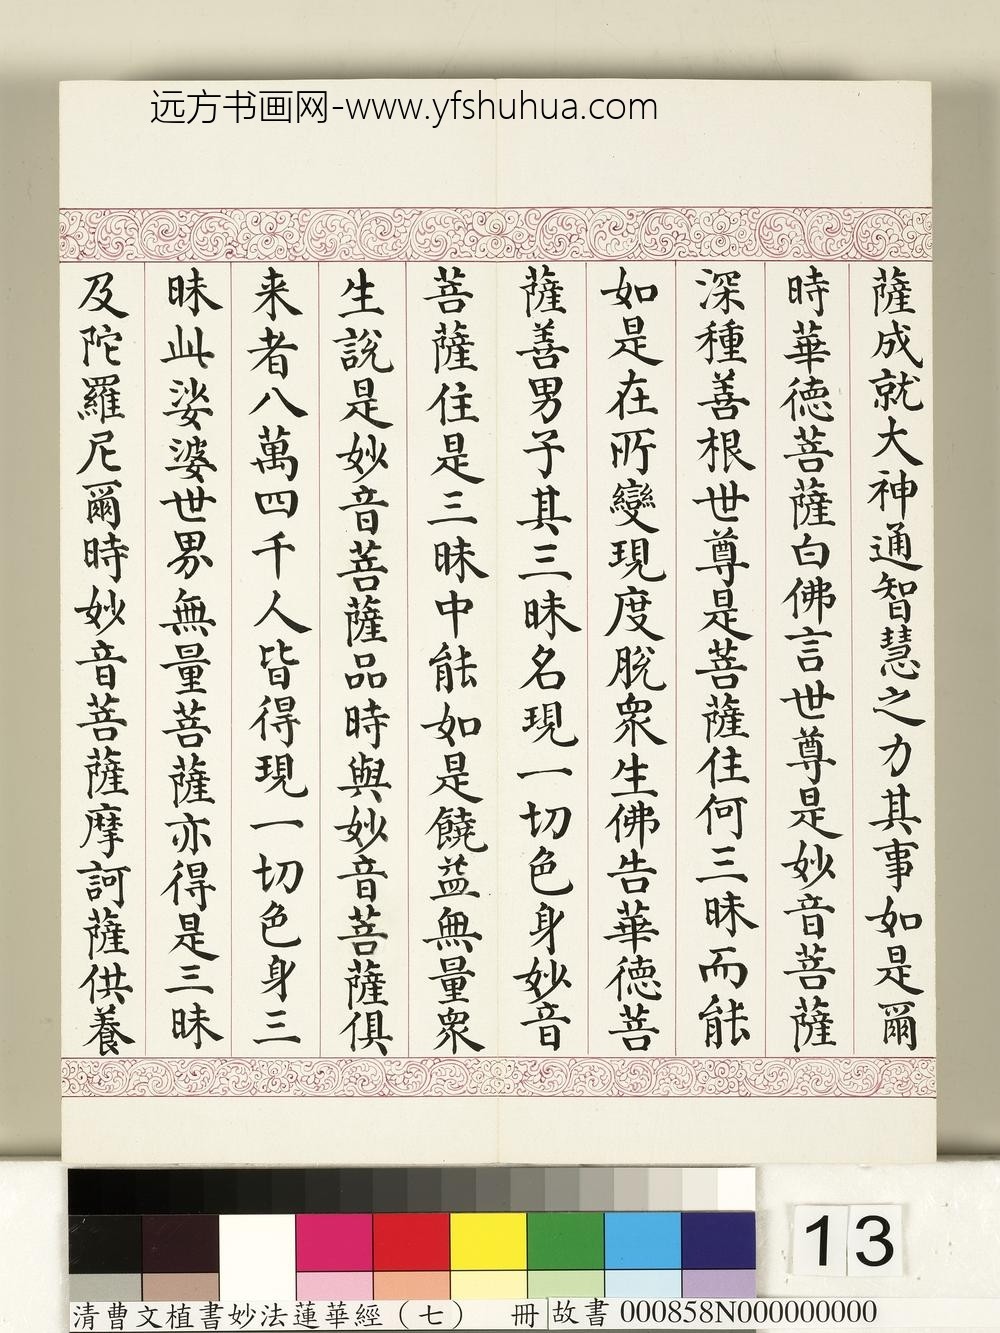 远方书画网-www.yfshuhua.com
薩成就大神通智慧之力其事如是爾
時華德菩薩白佛言世尊是妙音菩薩
深種善根世尊是菩薩住何三昧而能
如是在所變現度脫眾生佛告華德菩
薩善男子其三昧名現一切色身妙音
菩薩住是三昧中能如是饒益無量眾
生說是妙音菩薩品時與妙音菩薩俱
来者八萬四千人皆得現一切色身三
昧此娑婆世界無量菩薩亦得是三昧
及陀羅尼爾時妙音菩薩摩訶薩供養
13
清曹文植書妙法蓮華經（七） 冊
故書 000858N000000000